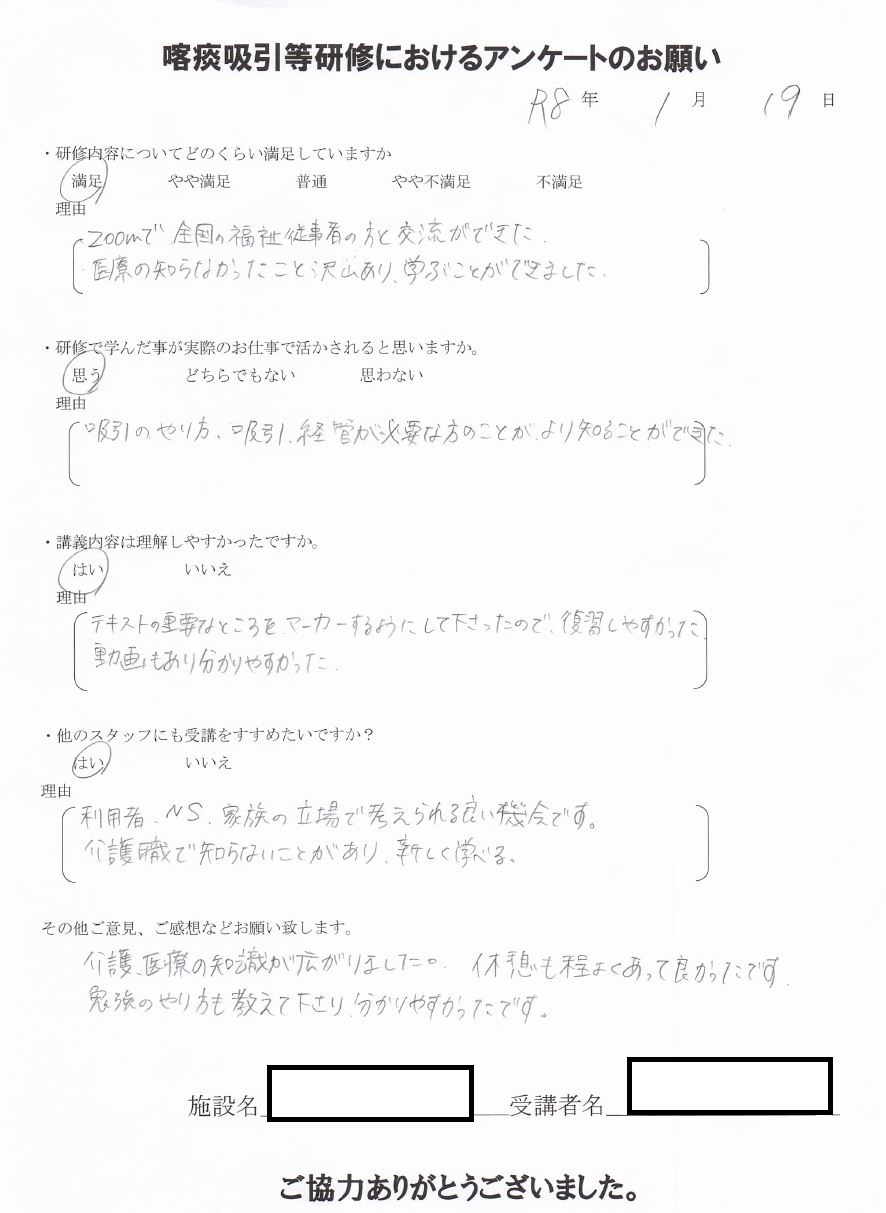 喀痰吸引等研修におけるアンケートのお願い
R8年 1月 19日
・研修内容についてどのくらい満足していますか
満足 やや満足 普通 やや不満足 不満足
理由
zoomで 全国の福祉従事者の方と交流ができた.
医療の知らなかったこと沢山あり、学ぶことができました.
・研修で学んだ事が実際のお仕事で活かされると思いますか。
思う どちらでもない 思わない
理由
吸引のやり方、吸引、経管が必要な方のことが、より知ることができた.
・講義内容は理解しやすかったですか。
はい いいえ
理由
テキストの重要なところを、マーカーするようにして下さったので、復習しやすかった.
動画もあり分かりやすかった.
・他のスタッフにも受講をすすめたいですか？
はい いいえ
理由
利用者、NS、家族の立場で考えられる良い機会です。
介護職で知らないことがあり、新しく学べる、
その他ご意見、ご感想などお願い致します。
介護、医療の知識が広がりました。 休憩も程よくあって良かったです.
勉強のやり方も教えて下さり、分かりやすかったです。
施設名 受講者名
ご協力ありがとうございました。